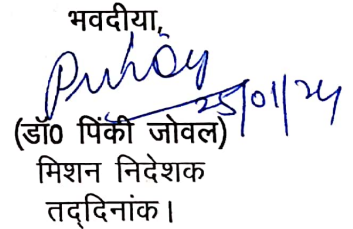 भवदीया,
25/01/24
(डॉ0 पिंकी जोवल)
मिशन निदेशक
तद्दिनांक।